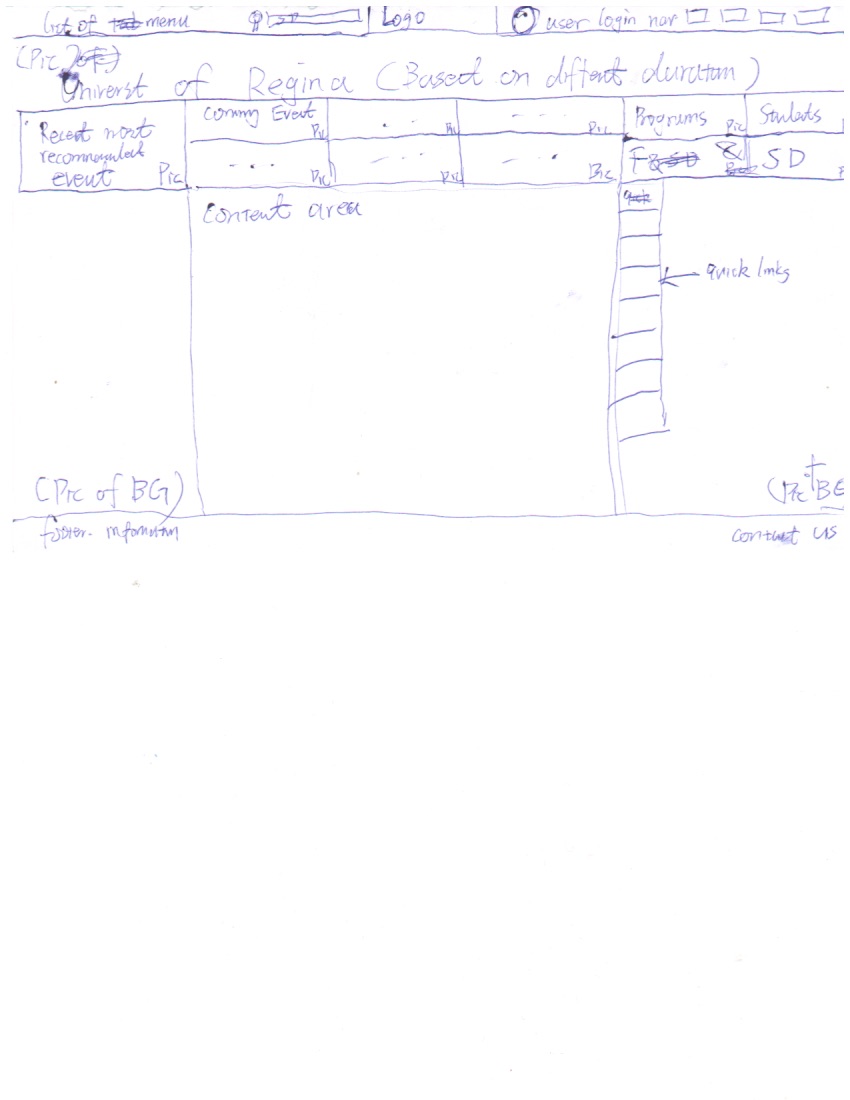 List of menu
Logo
user login nav
(Pic)
Universt of Regina (Based on diffent duration)
Recent most
recommended
event Pic
Coming Event
Pic
Pic
Pic
Pic
Pic
Pic
Programs Pic
Students
F &
SD
Content area
quick links
(Pic of BG)
(Pic of BG
footer. information
contact us